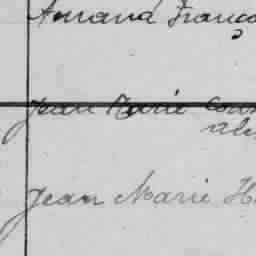 Armand Franço
Jean Marie Cou
Jean Marie H